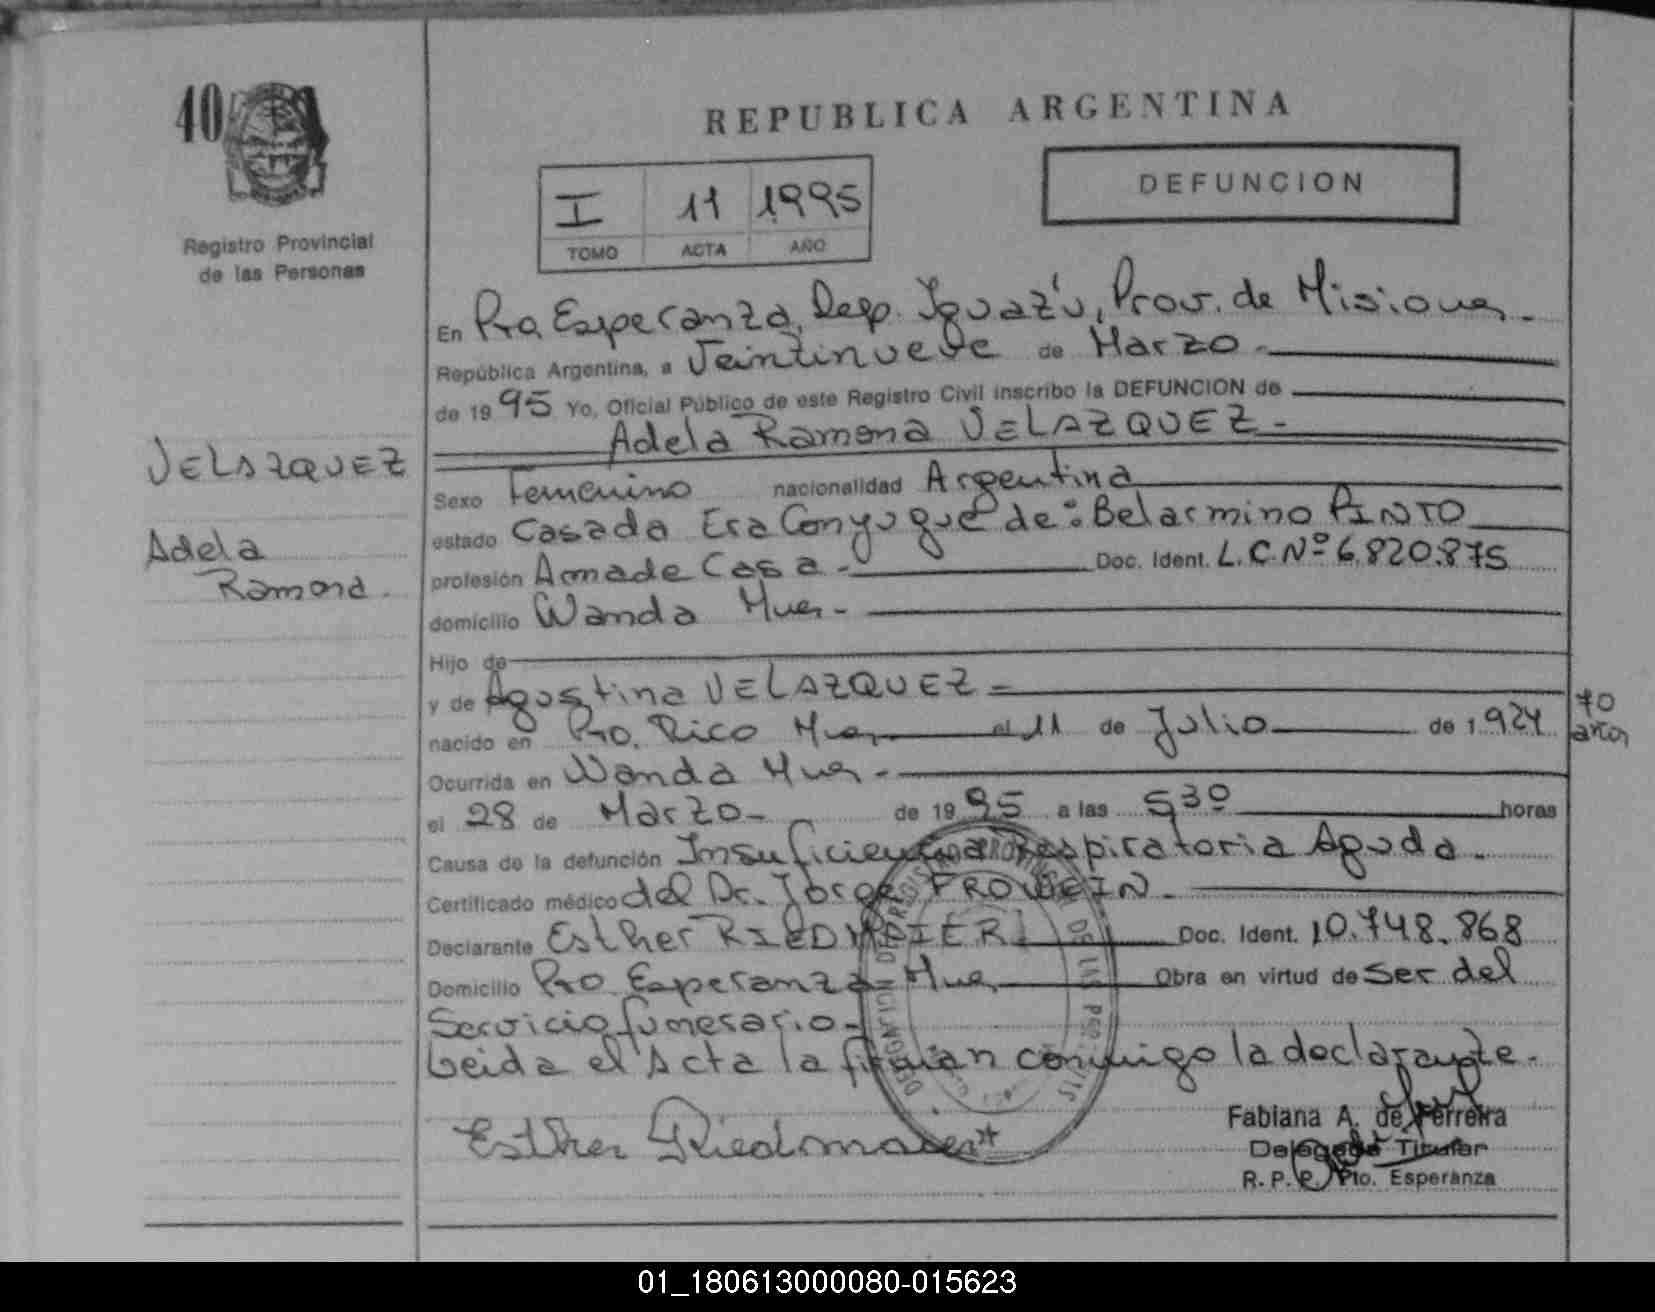 40
REPUBLICA ARGENTINA
DEFUNCION
I 11 1995
TOMO ACTA AÑO
Registro Provincial
de las Personas
En Pto. Esperanza, Dep. Iguazú, Prov. de Misiones.
República Argentina, a Veintinueve de Marzo.
de 1995 Yo, Oficial Público de este Registro Civil inscribo la DEFUNCION de
Adela Ramona VELAZQUEZ.
VELAZQUEZ
Adela
Ramona.
Sexo Femenino nacionalidad Argentina
estado Casada Era Conyugue de: Belarmino PINTO
profesión Ama de Casa. Doc. Ident. L.C.Nº 6.820.875
domicilio Wanda Mnes.
Hijo de
y de Agustina VELAZQUEZ
nacido en Pto. Rico Mnes. el 11 de Julio de 1.924 70 años
Ocurrida en Wanda Mnes.
el 28 de Marzo de 1995 a las 5 30 horas
Causa de la defunción Insuficiencia Respiratoria Aguda.
Certificado médico del Dr. Jorge FROWEIN.
Declarante Esther RIEDMAIER. Doc. Ident. 10.748.868
Domicilio Pto Esperanza Mnes Obra en virtud de Ser del
Servicio funerario.
Leida el Acta la firman conmigo la declarante.
Esther Riedmaier
Fabiana A. de Ferreira
Delegada Titular
R. P. P. Pto. Esperanza
01_180613000080-015623